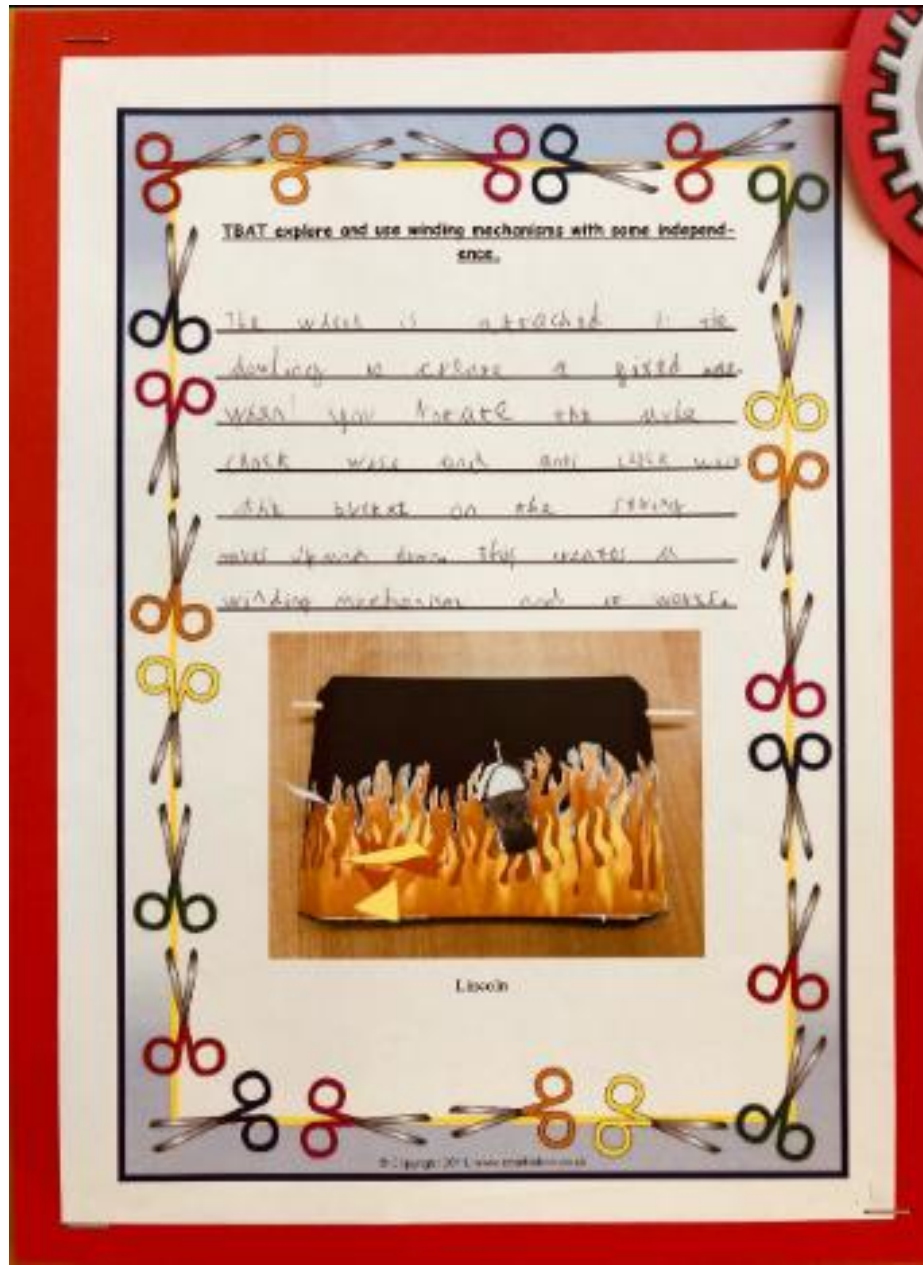 TBAT explore and use winding mechanisms with some independ-
ence.
The wheel is attached to the
dowling to create a fixed axle.
when you rotate the axle
clock wise and anti clock wise
the bucket on the string
moves up and down. This creates a
winding mechanism and it works.
Lincoln
© Copyright